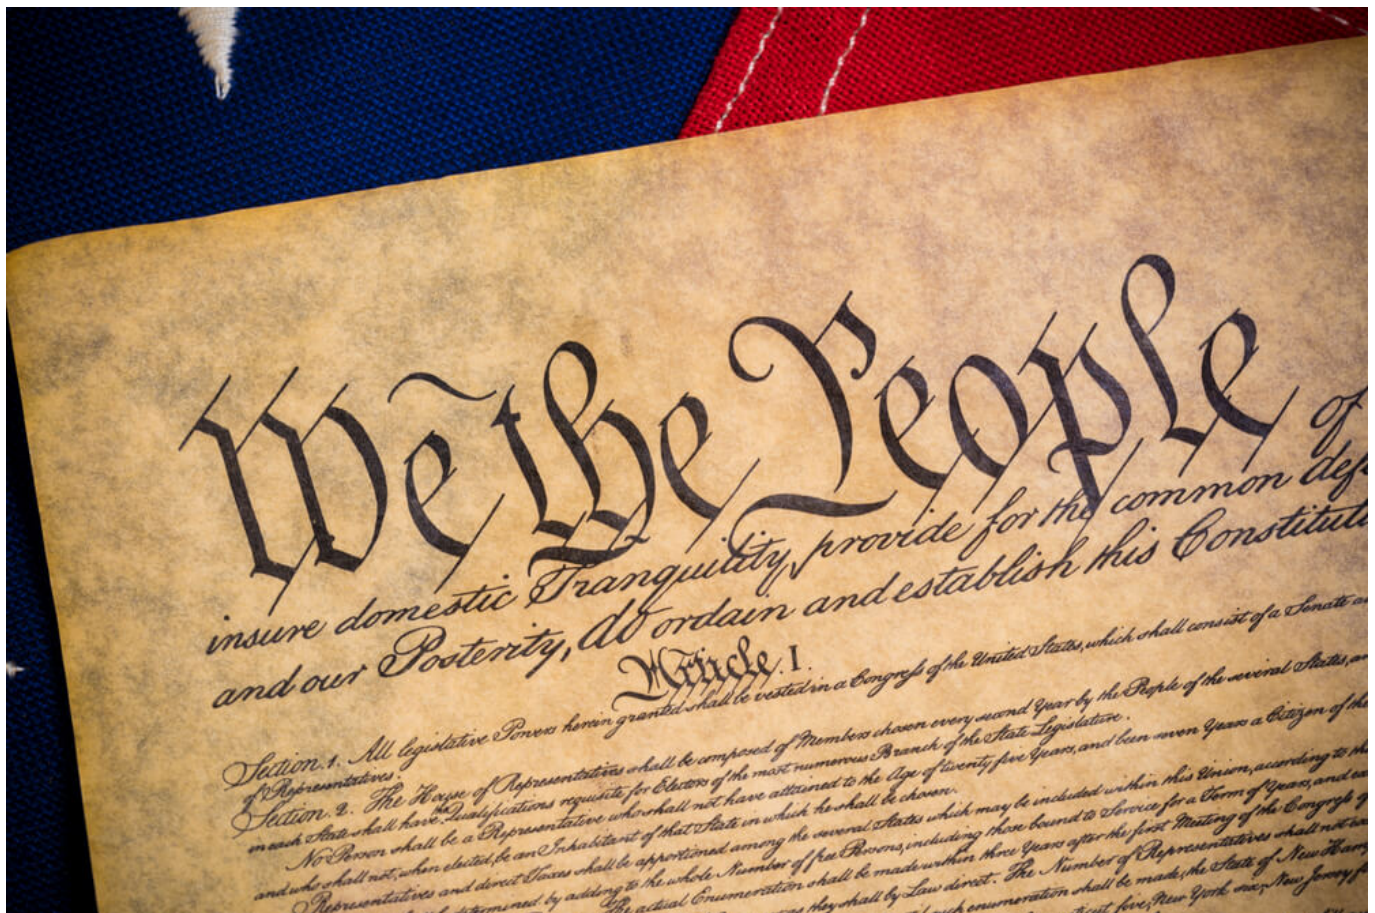 We the People of
insure domestic Tranquility, provide for the common defe
and our Posterity, do ordain and establish this Constituti
Article. I.
Section. 1. All legislative Powers herein granted shall be vested in a Congress of the United States, which shall consist of a Senate a
of Representatives.
Section. 2. The House of Representatives shall be composed of Members chosen every second Year by the People of the several States, an
in each State shall have Qualifications requisite for Electors of the most numerous Branch of the State Legislature.
No Person shall be a Representative who shall not have attained to the Age of twenty five Years, and been seven Years a Citizen of the
and who shall not, when elected, be an Inhabitant of that State in which he shall be chosen.
Representatives and direct Taxes shall be apportioned among the several States which may be included within this Union, according to th
determined by adding to the whole Number of free Persons, including those bound to Service for a Term of Years, and ex
The actual Enumeration shall be made within three Years after the first Meeting of the Congress of
they shall by Law direct. The Number of Representatives shall not
such enumeration shall be made, the State of New Ham
five, New York six, New Jersey f